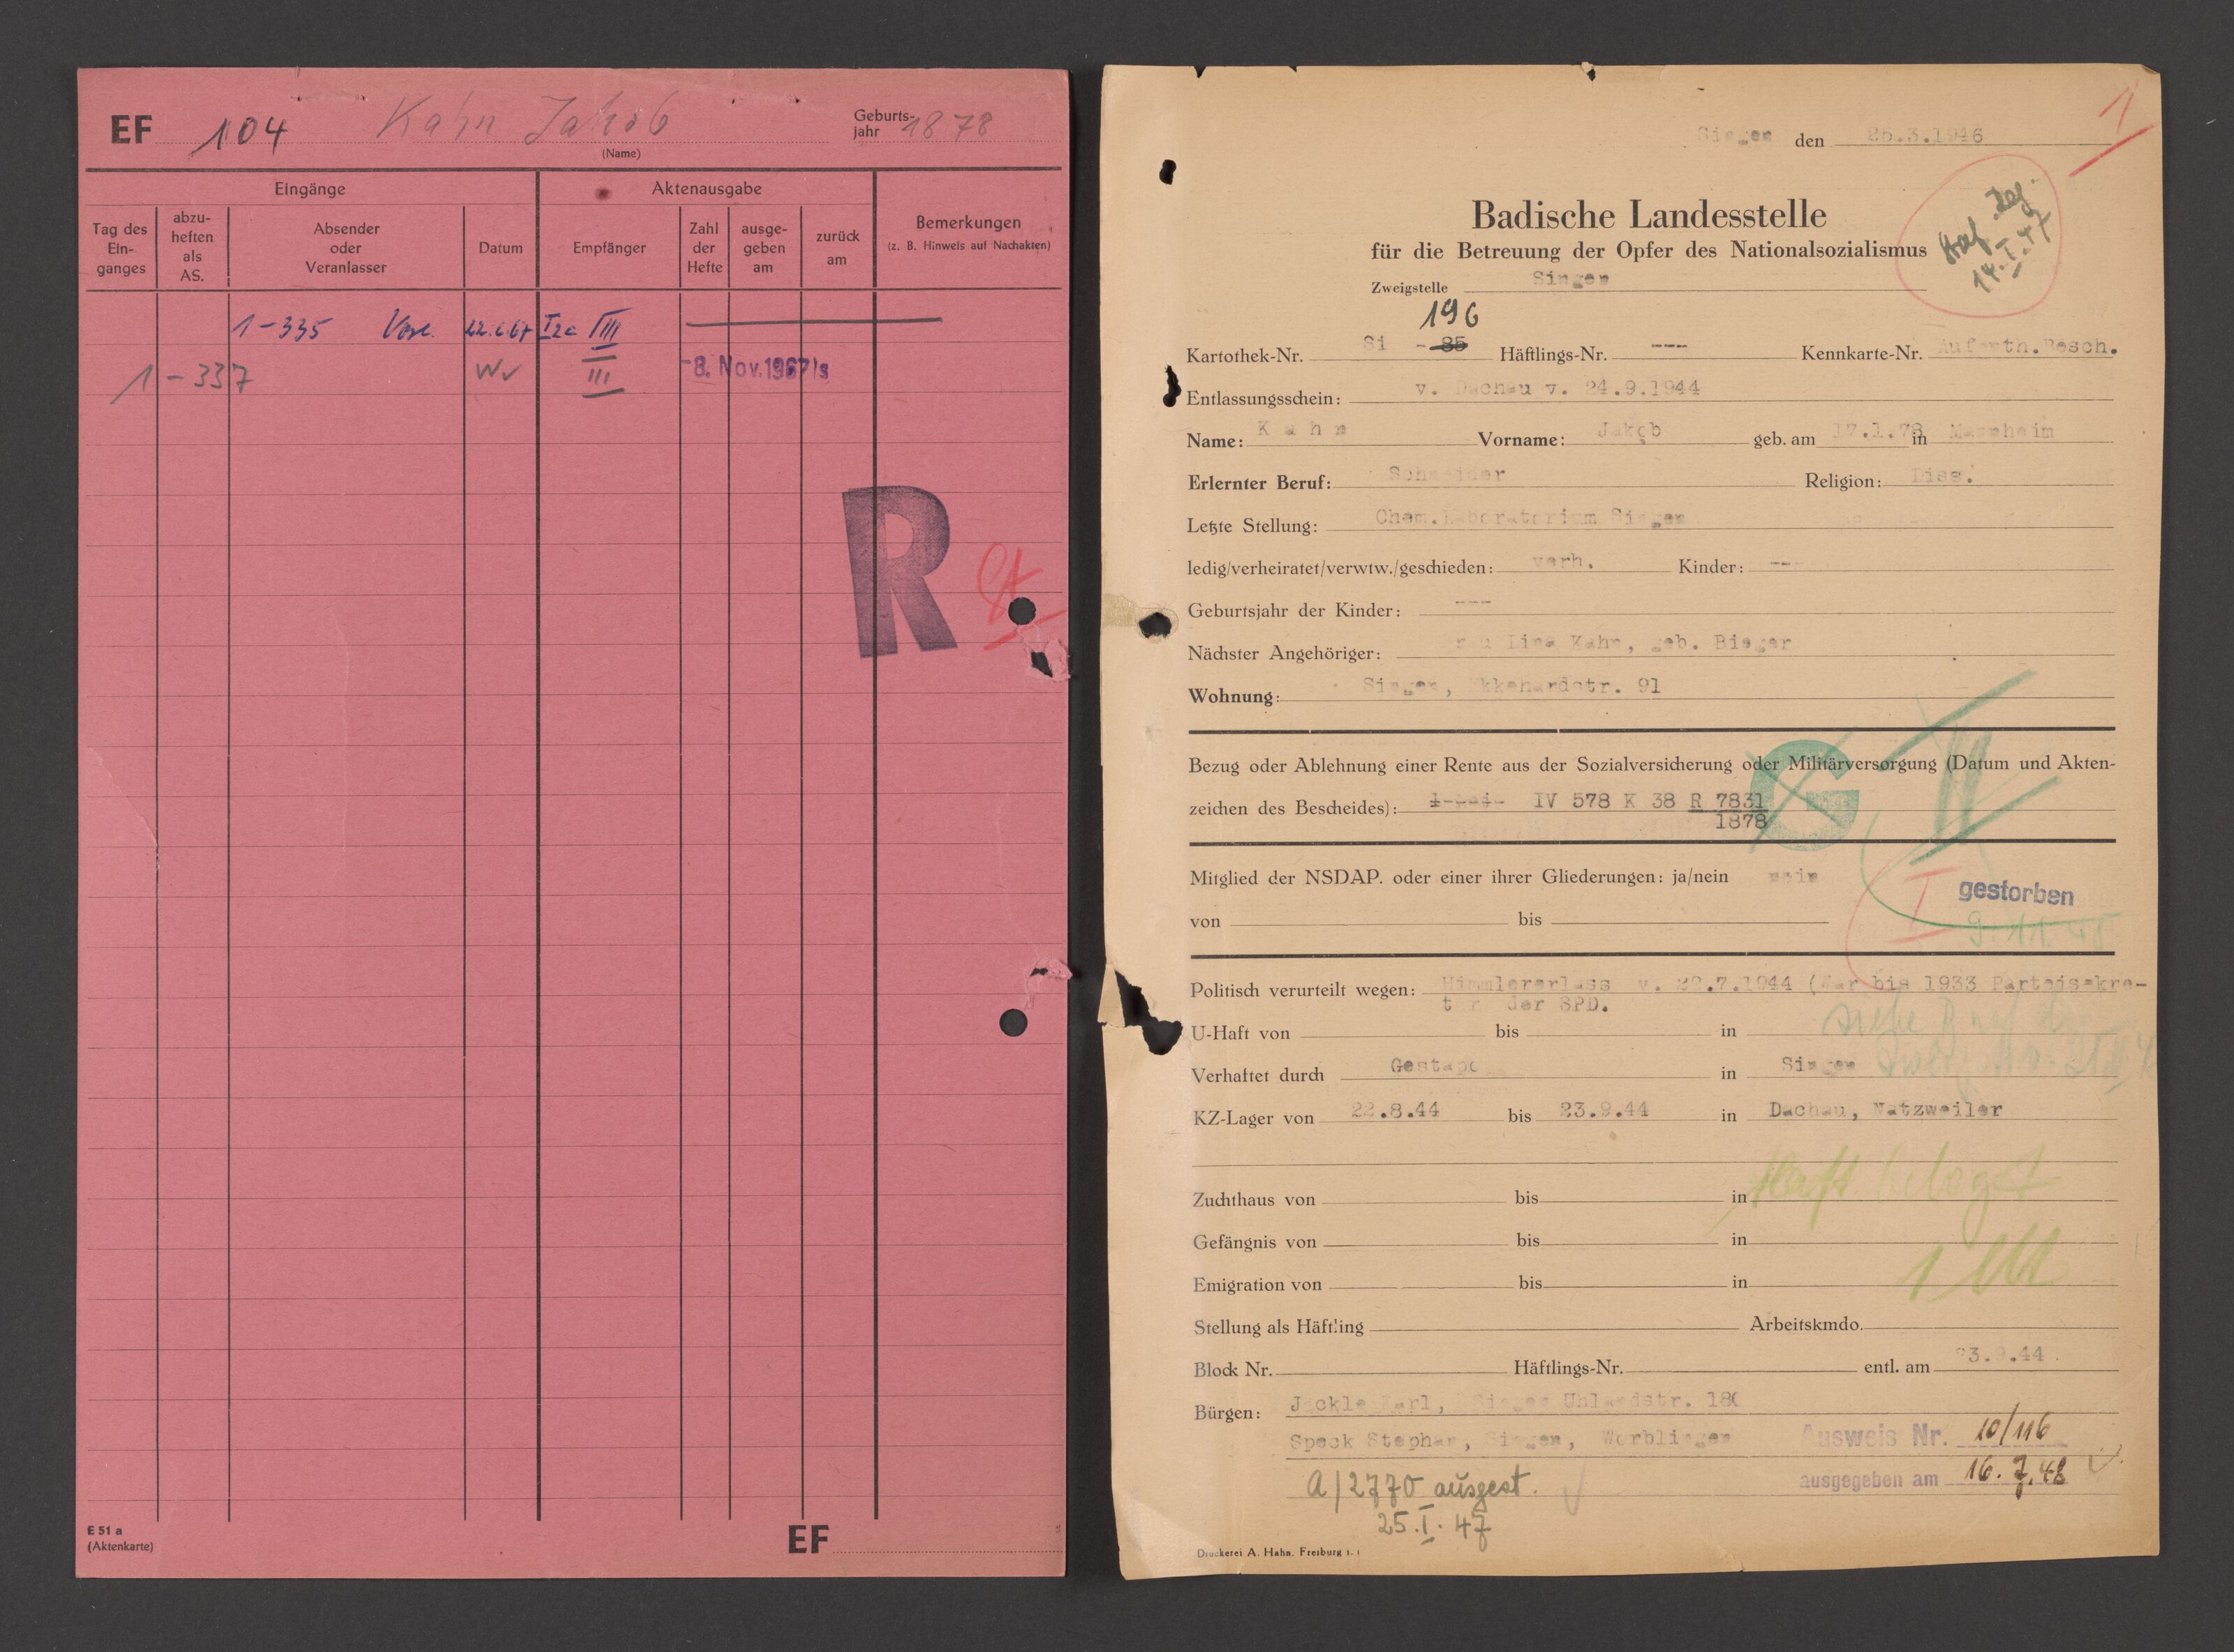 EF 104 Kahn Jakob Geburtsjahr 1878
(Name)
Eingänge Aktenausgabe
Tag des Einganges abzuheften als AS. Absender oder Veranlasser Datum Empfänger Zahl der Hefte ausgegeben am zurück am Bemerkungen (z. B. Hinweis auf Nachakten)
1-335 22.6.67 III
1-337 Wv III -8. Nov. 1967
R
E 51 a
(Aktenkarte)
EF
1
Singen den 26.3.1946
Badische Landesstelle
für die Betreuung der Opfer des Nationalsozialismus
Zweigstelle Singen
14.I.47
196
Kartothek-Nr. Si - 85 Häftlings-Nr. --- Kennkarte-Nr. Aufenth.Besch.
Entlassungsschein: v. Dachau v. 24.9.1944
Name: Kahn Vorname: Jakob geb. am 17.1.78 in Mannheim
Erlernter Beruf: Schneider Religion: Diss.
Letzte Stellung: Chem.Laboratorium Singen
ledig/verheiratet/verwtw./geschieden: verh. Kinder: ---
Geburtsjahr der Kinder: ---
Nächster Angehöriger: Frau Lina Kahn, geb. Bieger
Wohnung: Singen, Ekkehardstr. 91
Bezug oder Ablehnung einer Rente aus der Sozialversicherung oder Militärversorgung (Datum und Akten-
zeichen des Bescheides): IV 578 K 38 R 7831
1878
G II
Mitglied der NSDAP. oder einer ihrer Gliederungen: ja/nein nein
I gestorben
von bis
9.11.48
Politisch verurteilt wegen: Himmlererlass v. 22.7.1944 (War bis 1933 Parteisekre-
tär der SPD.
U-Haft von bis in
siehe
Verhaftet durch Gestapo in Singen
KZ-Lager von 22.8.44 bis 23.9.44 in Dachau, Natzweiler
Haft belegt
Zuchthaus von bis in
Gefängnis von bis in
1 M
Emigration von bis in
Stellung als Häftling Arbeitskmdo.
Block Nr. Häftlings-Nr. entl. am 23.9.44
Bürgen: Jäckle Karl, Singen Uhlandstr.
Speck Stephan, Singen, Worblingen
Ausweis Nr. 10/116
A/2770 ausgest.
ausgegeben am 16.7.48
25.I.47
Druckerei A. Hahn, Freiburg i.